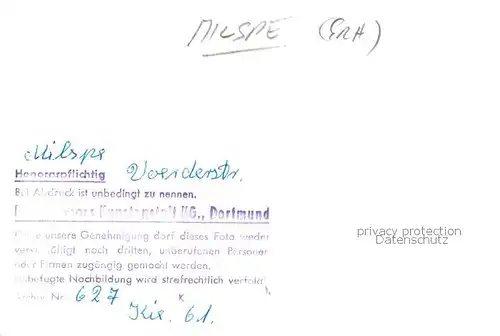 MILSPE (ERH)
Milspe
Voerderstr.
Honorarpflichtig
Bei Abdruck ist unbedingt zu nennen.
Kunstanstalt KG., Dortmund
Ohne unsere Genehmigung darf dieses Foto weder
vervielfältigt noch dritten, unberufenen Personen
oder Firmen zugängig gemacht werden.
Unbefugte Nachbildung wird strafrechtlich verfolgt
Archiv Nr. 627 K
Kir. 61.
privacy protection
Datenschutz